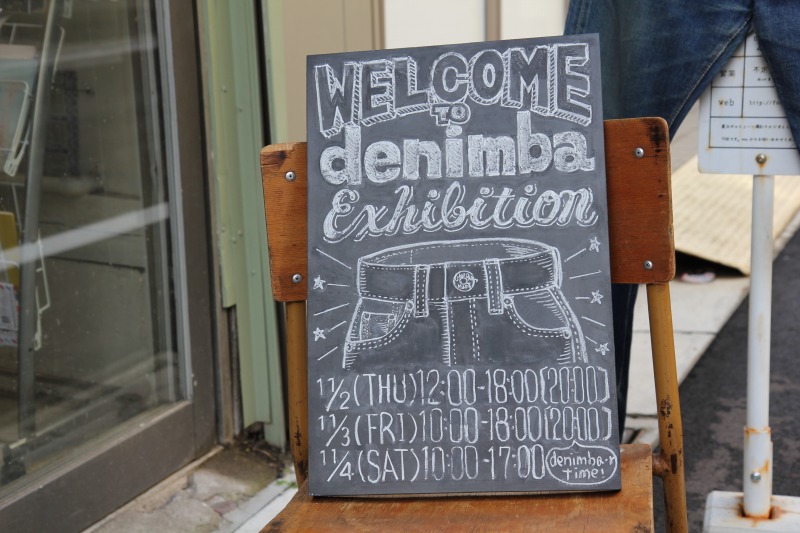 WELCOME
TO
denimba
Exhibition
11/2(THU)12:00-18:00(20:00)
11/3(FRI)10:00-18:00(20:00)
11/4(SAT)10:00-17:00
denimba-n
Time!
営業
web